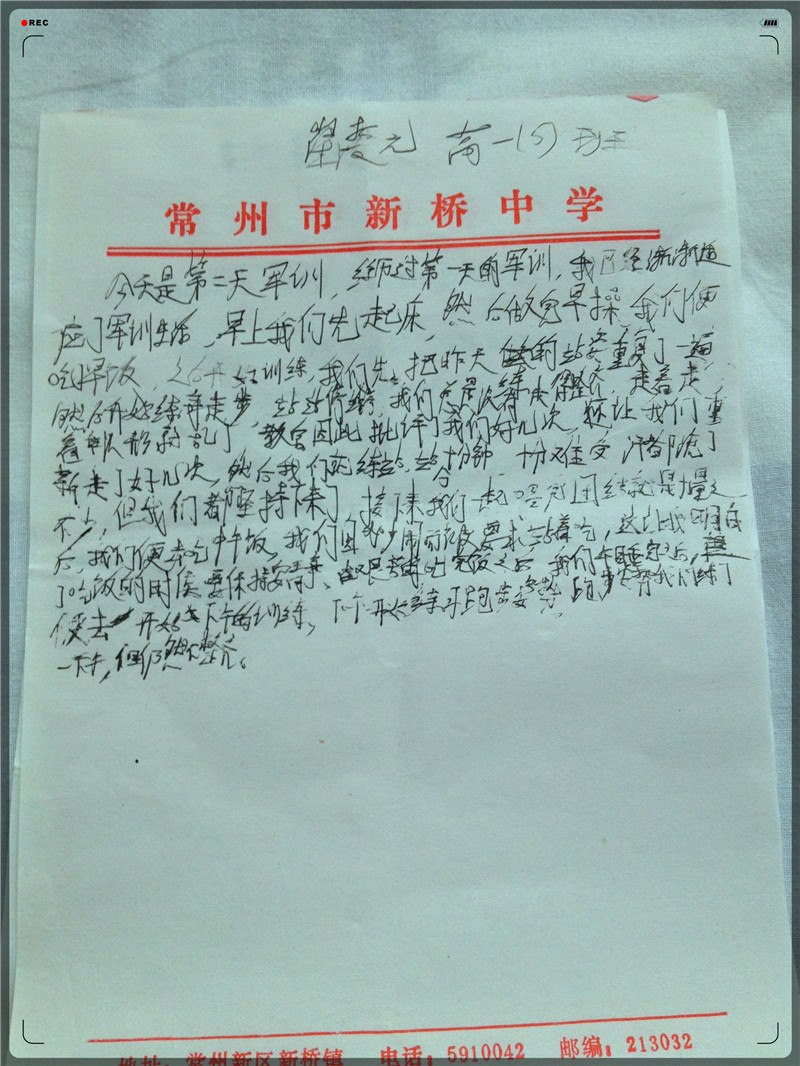 REC
高一(5)班
常州市新桥中学
今天是第二天军训，经历过第一天的军训，我已经渐渐适
应了军训生活，早上我们先起床，然后做完早操我们便
吃早饭，之后开始训练，我们先把昨天的站姿重复了一遍
然后开始练齐走步，我们走着走
着队形就乱了，教官因此批评了我们好几次，还让我们重
新走了好几次，然后我们又练站分钟，十分难受，汗都流了
不少，但我们都坚持下来了，接下来我们一起唱了团结就是力量之
后，我们便去吃中午饭，我们因要求站着吃，这让我明白
了吃饭的时候要保持安静，吃完饭之后，我们午睡完之后，
便去开始下午的训练，下午开始跑步姿势，我们练了
一下午，但仍然不整齐。
地址：常州新区新桥镇 电话：5910042 邮编：213032